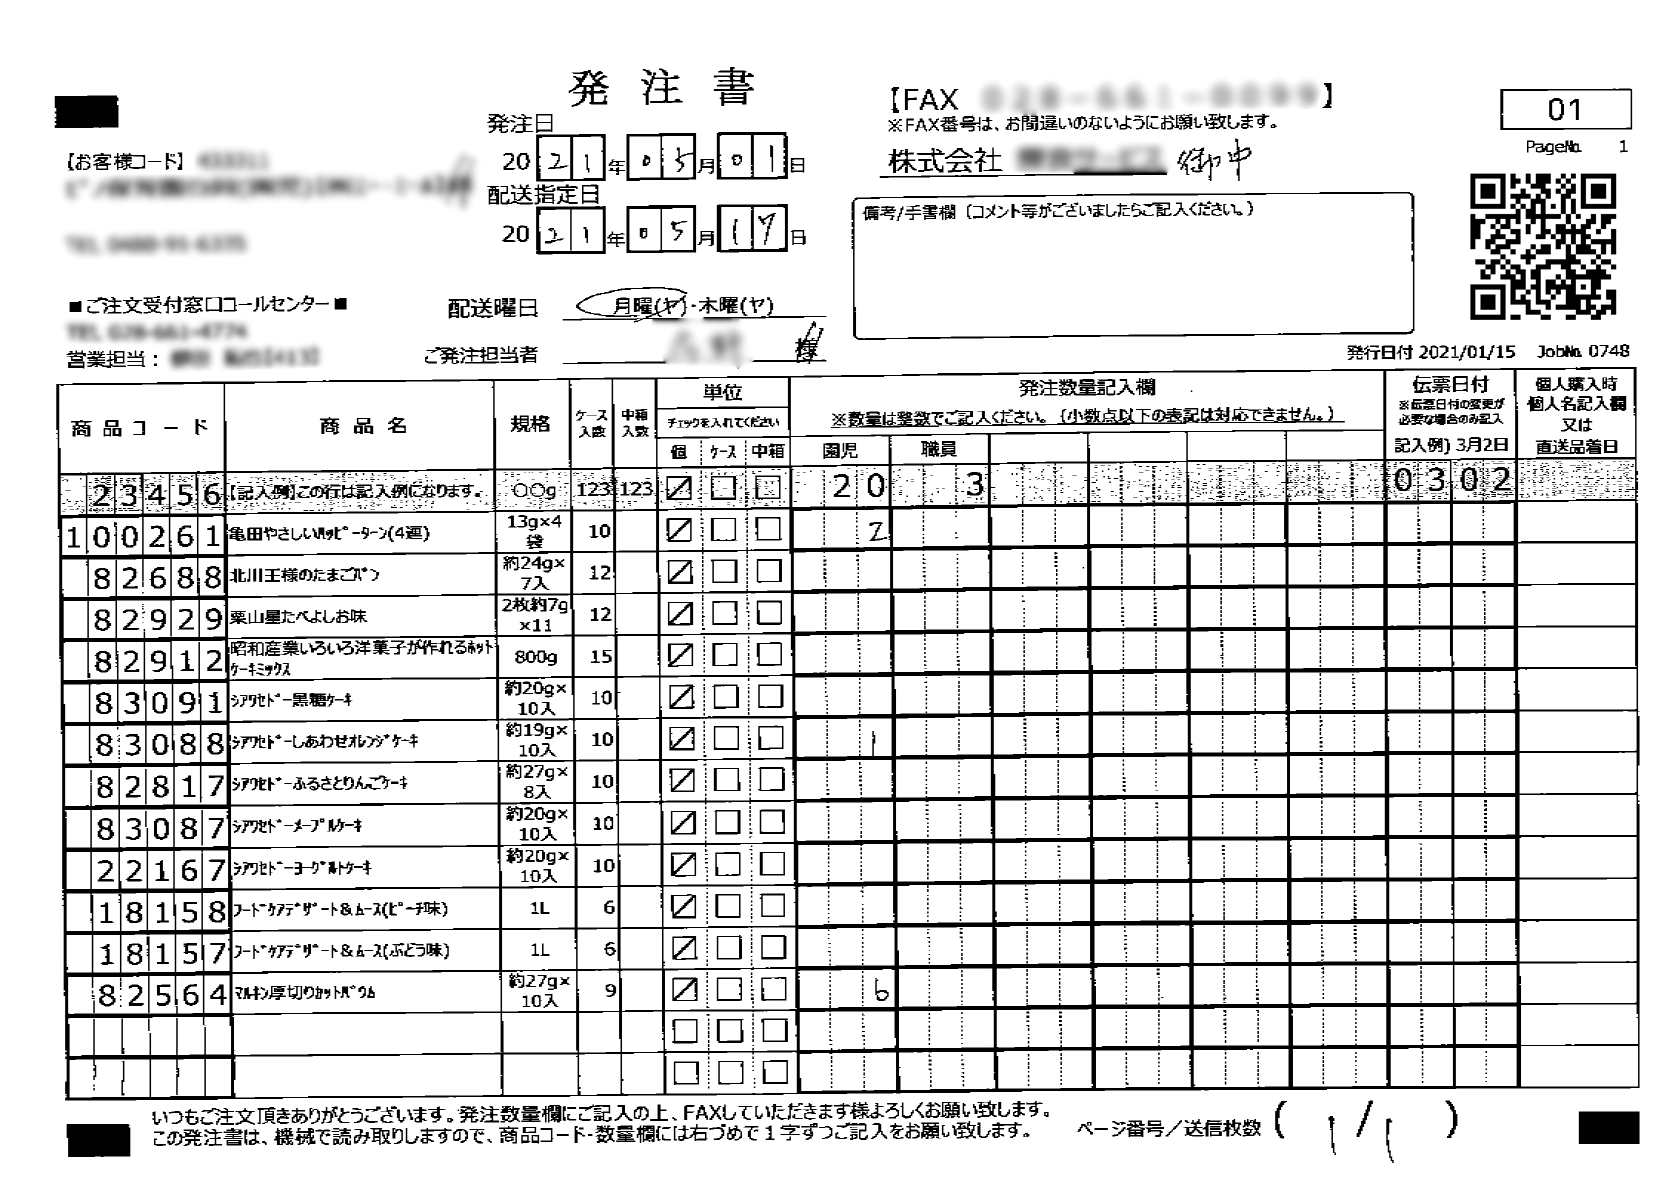 発注書
【FAX 】
※FAX番号は、お間違いのないようにお願い致します。
01
PageNo. 1
発注日
2021年05月01日
株式会社 御中
【お客様コード】
配送指定日
2021年05月17日
備考/手書欄(コメント等がございましたらご記入ください。)
■ご注文受付窓口コールセンター■
営業担当:
配送曜日 月曜(ヤ)・木曜(ヤ)
ご発注担当者 様
発行日付 2021/01/15 JobNo. 0748
商品コード 商品名 規格 ケース入数 中箱入数 単位 発注数量記入欄 伝票日付 個人購入時
チェックを入れてください ※数量は整数でご記入ください。(小数点以下の表記は対応できません。) ※伝票日付の変更が必要な場合のみ記入 個人名記入欄
又は
個 ケース 中箱 園児 職員 記入例) 3月2日 直送品着日
23456 【記入例】この行は記入例になります。 〇〇g 123 123 20 3 0302
100261 亀田やさしいハッピーターン(4連) 13g×4袋 10 2
82688 北川王様のたまごパン 約24g×7入 12
82929 栗山星たべよしお味 2枚約7g×11 12
82912 昭和産業いろいろ洋菓子が作れるホットケーキミックス 800g 15
83091 シアワセドー黒糖ケーキ 約20g×10入 10
83088 シアワセドーしあわせオレンジケーキ 約19g×10入 10 1
82817 シアワセドーふるさとりんごケーキ 約27g×8入 10
83087 シアワセドーメープルケーキ 約20g×10入 10
22167 シアワセドーヨーグルトケーキ 約20g×10入 10
18158 フードケアデザート&ムース(ピーチ味) 1L 6
18157 フードケアデザート&ムース(ぶどう味) 1L 6
82564 マルキン厚切りカットバウム 約27g×10入 9 6
いつもご注文頂きありがとうございます。発注数量欄にご記入の上、FAXしていただきます様よろしくお願い致します。
この発注書は、機械で読み取りしますので、商品コード・数量欄には右づめで1字ずつご記入をお願い致します。
ページ番号/送信枚数 ( 1/1 )